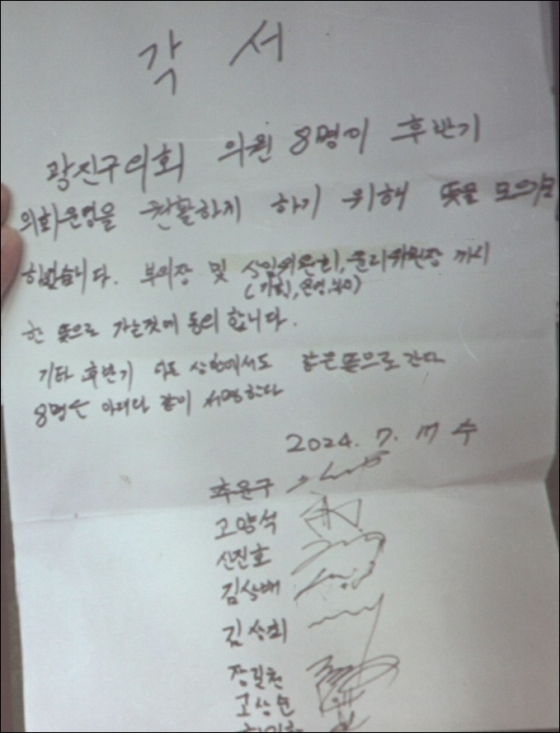 각서
광진구의회 의원 8명이 후반기
의회운영을 원활하게 하기 위해 뜻을 모으기로
하였습니다. 부의장 및 상임위원회, 윤리위원장 까지
(기획, 운영, 복지)
한 뜻으로 가는것에 동의 합니다.
기타 후반기 상황에서도 같은 뜻으로 간다
8명은 아래와 같이 서명한다
2024. 7. 17 수
추윤구
고양석
신진호
김상배
김상희
장길천
고상순